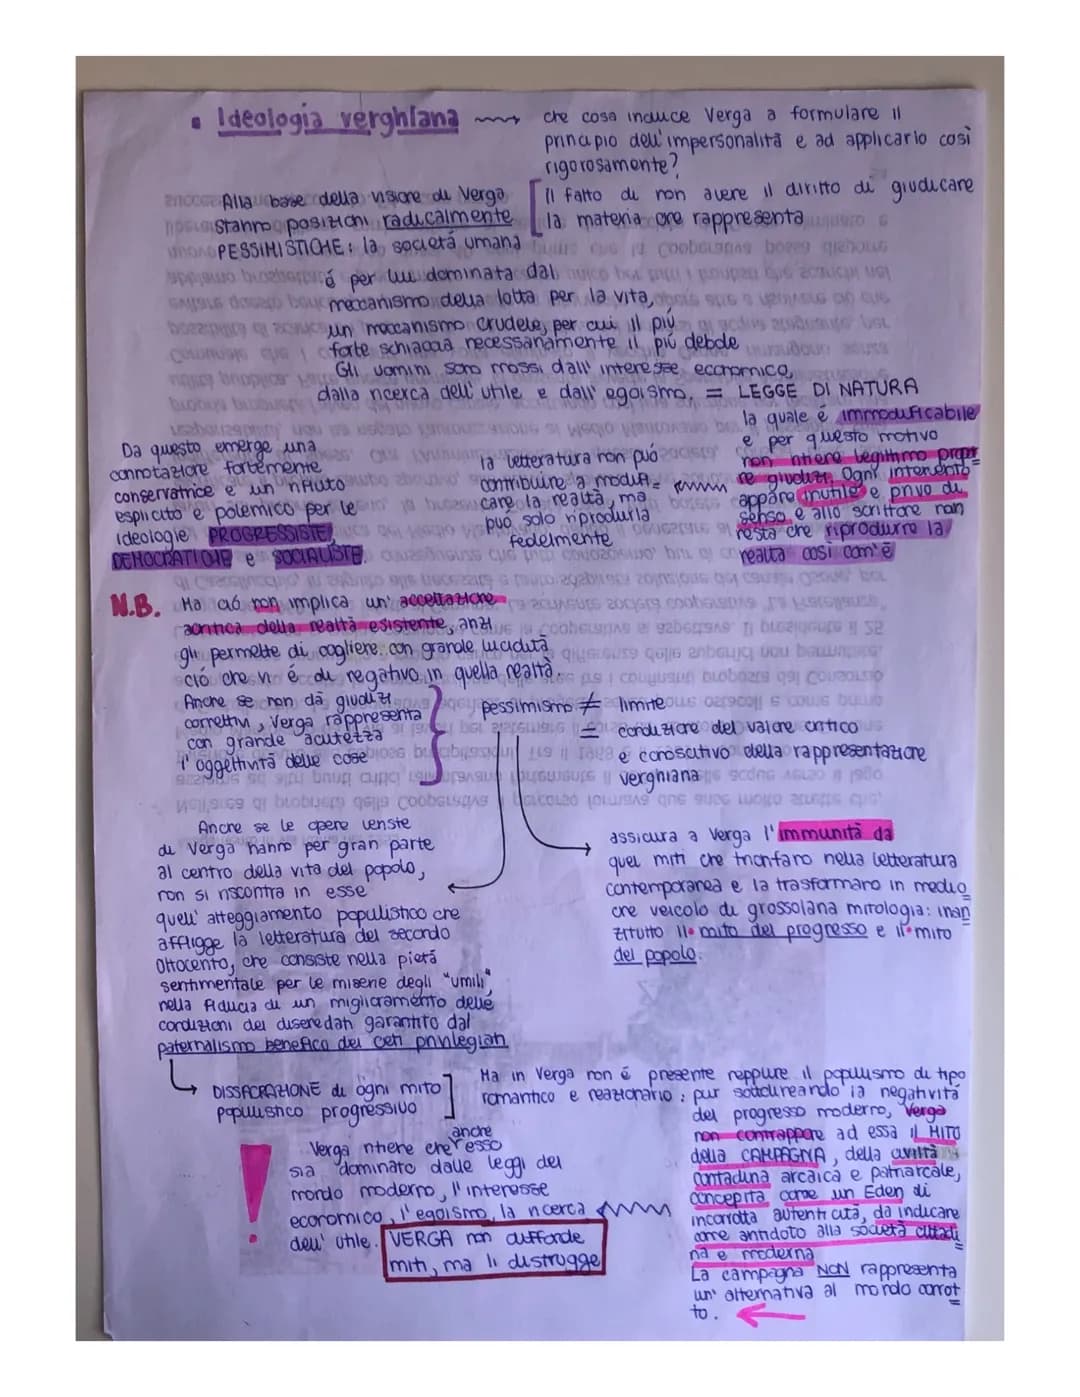 • Ideologia verghiana
che cosa induce Verga a formulare il
principio dell'impersonalità e ad applicarlo così
rigorosamente?
Il fatto di non avere il diritto di giudicare
la materia che rappresenta
Alla base della visione di Verga
stanno posizioni radicalmente
PESSIMISTICHE: la società umana
é per lui dominata dal
meccanismo della lotta per la vita,
un meccanismo crudele, per cui il più
forte schiaccia necessariamente il più debole
Gli uomini sono mossi dall'interesse economico,
dalla ricerca dell'utile e dall'egoismo. = LEGGE DI NATURA
la quale é immodificabile
e per questo motivo
non ritiene legittimo propr
re giudizi. Ogni intervento
appare inutile e privo di
senso e allo scrittore non
resta che riprodurre la
realtà così com'é
la letteratura non può
contribuire a modifi=
care la realtà, ma
può solo riprodurla
fedelmente
Da questo emerge una
connotazione fortemente
conservatrice e un rifiuto
esplicito e polemico per le
ideologie PROGRESSISTE,
DEMOCRATICHE e SOCIALISTE.
N.B. Ma ciò non implica un'accettazione
acritica della realtà esistente, anzi
gli permette di cogliere con grande lucidità
ciò che vi é di negativo in quella realtà.
Anche se non dà giudizi
correttivi, Verga rappresenta
con grande acutezza
l'oggettività delle cose
pessimismo ≠ limite
= condizione del valore critico
e conoscitivo della rappresentazione
verghiana
assicura a Verga l'immunità da
quei miti che trionfano nella letteratura
contemporanea e la trasformano in medio
cre veicolo di grossolana mitologia: inan
zitutto il • mito del progresso e il • mito
del popolo.
Anche se le opere veriste
di Verga hanno per gran parte
al centro della vita del popolo,
non si riscontra in esse
quell'atteggiamento populistico che
affligge la letteratura del secondo
Ottocento, che consiste nella pietà
sentimentale per le miserie degli "umili",
nella fiducia di un miglioramento delle
condizioni dei diseredati garantito dal
paternalismo benefico dei ceti privilegiati
DISSACRAZIONE di ogni mito
populistico progressivo
Ma in Verga non é presente neppure il populismo di tipo
romantico e reazionario: pur sottolineando la negatività
del progresso moderno, Verga
non contrappone ad essa il MITO
della CAMPAGNA, della civiltà
contadina arcaica e patriarcale,
concepita come un Eden di
incorrotta autenticità, da indicare
come antidoto alla società cittadi
na e moderna
La campagna NON rappresenta
un'alternativa al mondo corrot
to.
! Verga ritiene che anche esso
sia dominato dalle leggi del
mondo moderno, l'interesse
economico, l'egoismo, la ricerca
dell'utile.
VERGA non diffonde
miti, ma li distrugge